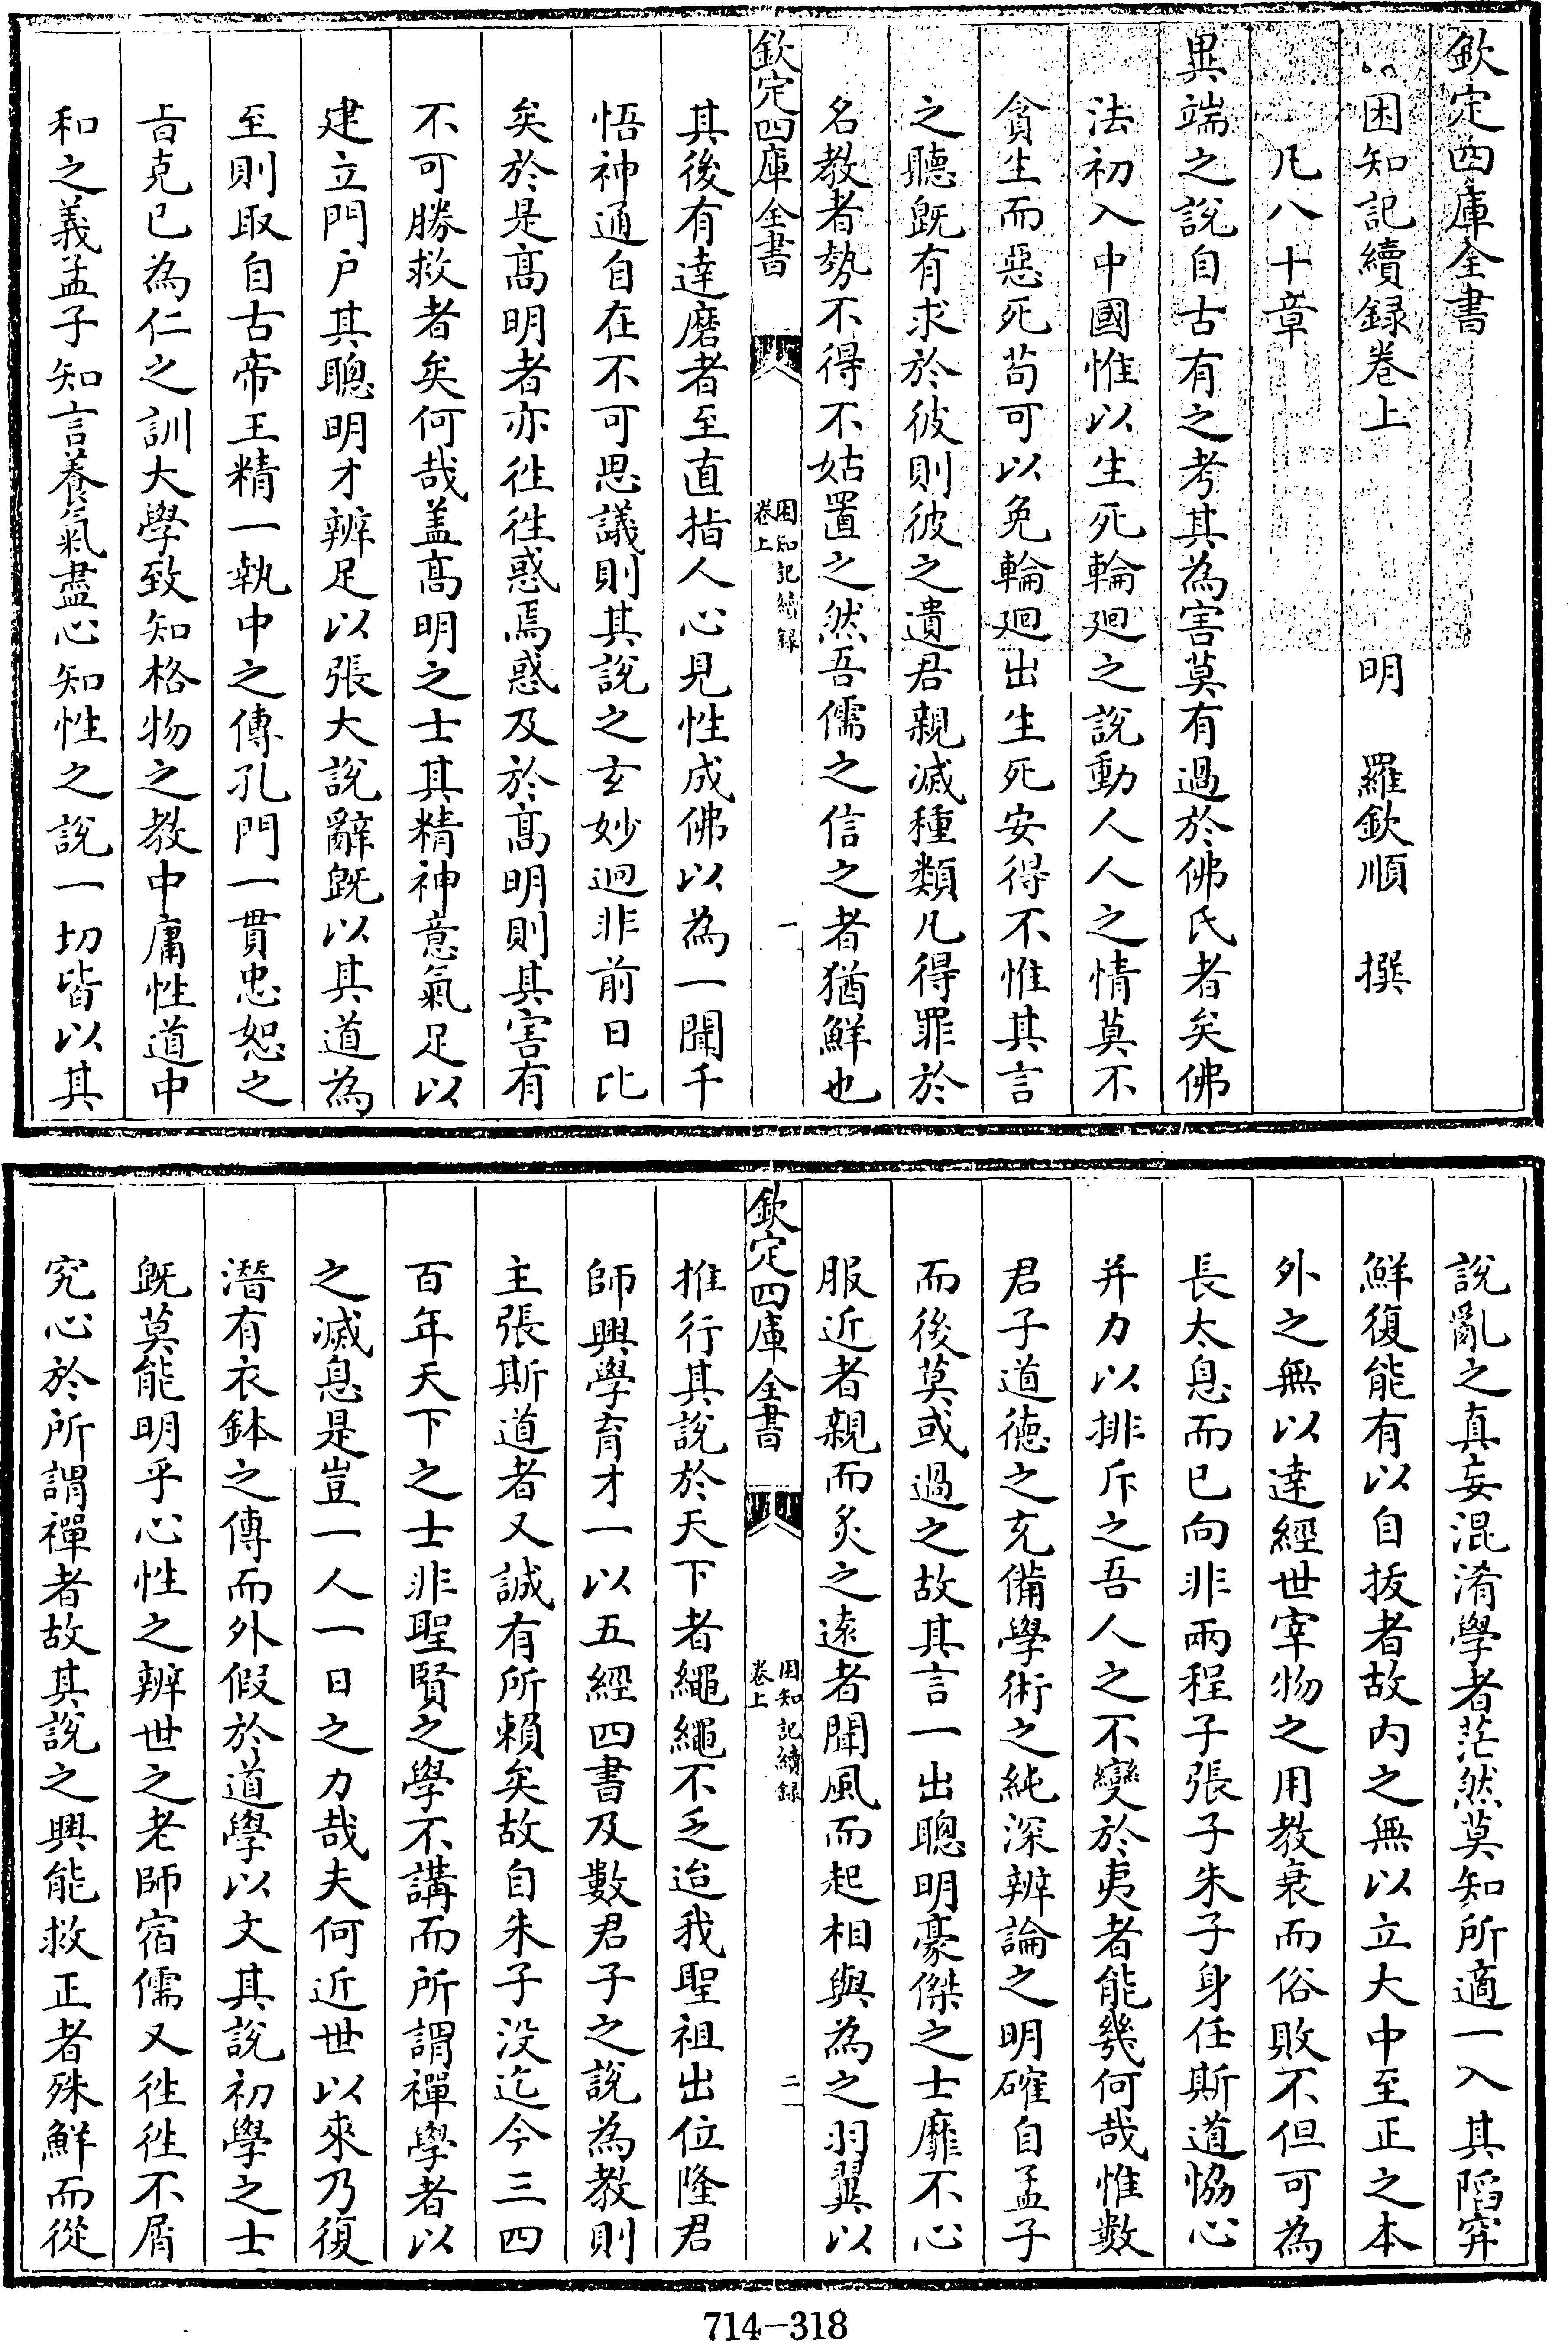 欽定四庫全書
困知記續録卷上　明　羅欽順　撰
凡八十章
異端之說自古有之考其為害莫有過於佛氏者矣佛
法初入中國惟以生死輪廻之說動人人之情莫不
貪生而惡死苟可以免輪廻出生死安得不惟其言
之聽既有求於彼則彼之遺君親滅種類凡得罪於
名教者勢不得不姑置之然吾儒之信之者猶鮮也
欽定四庫全書　困知記續録卷上　一
其後有達磨者至直指人心見性成佛以為一聞千
悟神通自在不可思議則其說之玄妙迥非前日比
矣於是髙明者亦徃徃惑焉惑及於髙明則其害有
不可勝救者矣何哉盖髙明之士其精神意氣足以
建立門户其聰明才辨足以張大說辭既以其道為
至則取自古帝王精一執中之傳孔門一貫忠恕之
㫖克己為仁之訓大學致知格物之教中庸性道中
和之義孟子知言養氣盡心知性之說一切皆以其
說亂之真妄混淆學者茫然莫知所適一入其陷穽
鮮復能有以自拔者故内之無以立大中至正之本
外之無以達經世宰物之用教衰而俗敗不但可為
長太息而已向非兩程子張子朱子身任斯道恊心
并力以排斥之吾人之不變於夷者能幾何哉惟數
君子道徳之充備學術之純深辨論之明確自孟子
而後莫或過之故其言一出聰明豪傑之士靡不心
服近者親而炙之逺者聞風而起相與為之羽翼以
欽定四庫全書　困知記續録卷上　二
推行其說於天下者繩繩不乏迨我聖祖出位隆君
師興學育才一以五經四書及數君子之說為教則
主張斯道者又誠有所賴矣故自朱子没迄今三四
百年天下之士非聖賢之學不講而所謂禪學者以
之滅息是豈一人一日之力哉夫何近世以來乃復
潛有衣鉢之傳而外假於道學以文其說初學之士
既莫能明乎心性之辨世之老師宿儒又徃徃不屑
究心於所謂禪者故其說之興能救正者殊鮮而從
714-318